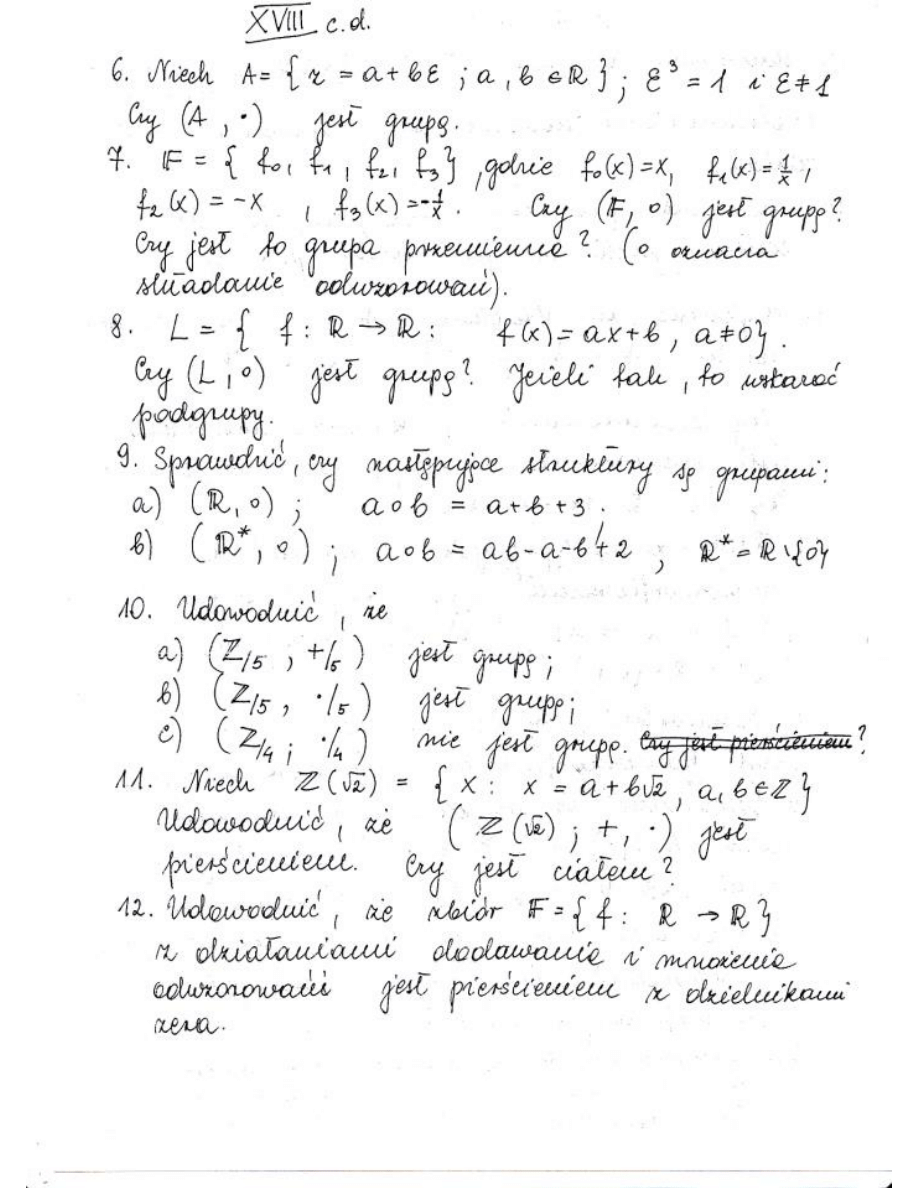 XVIII c.d.
6. Niech A = { z = a + bε ; a, b ∈ ℝ } ; ε³ = 1 i ε ≠ 1
Czy (A, ·) jest grupą.
7. 𝔽 = { f₀, f₁, f₂, f₃ }, gdzie f₀(x) = x, f₁(x) = 1/x,
f₂(x) = -x, f₃(x) = -1/x. Czy (𝔽, ∘) jest grupą?
Czy jest to grupa przemienna? (∘ oznacza
składanie odwzorowań).
8. L = { f : ℝ → ℝ : f(x) = ax + b, a ≠ 0 }.
Czy (L, ∘) jest grupą? Jeżeli tak, to wskazać
podgrupy.
9. Sprawdzić, czy następujące struktury są grupami:
a) (ℝ, ∘) ; a ∘ b = a + b + 3.
b) (ℝ*, ∘) ; a ∘ b = ab - a - b + 2 , ℝ* = ℝ \ {0}
10. Udowodnić, że
a) (ℤ/5 , +/5) jest grupą;
b) (ℤ/5 , ·/5) jest grupą;
c) (ℤ/4 ; ·/4) nie jest grupą. Czy jest pierścieniem?
11. Niech ℤ(√2) = { x : x = a + b√2, a, b ∈ ℤ }
Udowodnić, że (ℤ(√2) ; +, ·) jest
pierścieniem. Czy jest ciałem?
12. Udowodnić, że zbiór 𝔽 = { f : ℝ → ℝ }
z działaniami dodawania i mnożenia
odwzorowań jest pierścieniem z dzielnikami
zera.